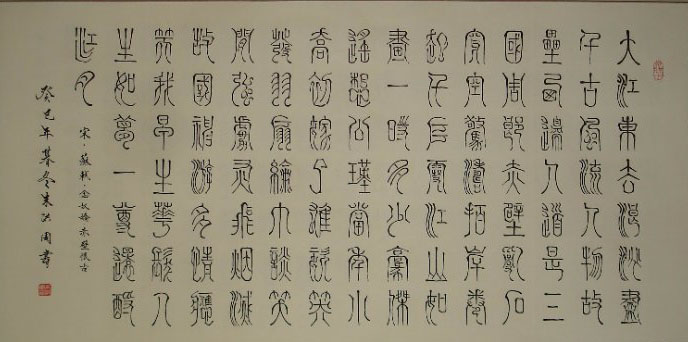 大江東去浪淘盡
千古風流人物故
壘西邊人道是三
國周郎赤壁亂石
穿空驚濤拍岸卷
起千𠂤雪江山如
畫一時多少豪傑
遙想公瑾當年小
喬初嫁了雄姿英
發羽扇綸巾談笑
間強虜灰飛烟滅
故國神游多情應
笑我早生華髮人
生如夢一尊還酹
江月
宋·蘇軾·念奴嬌·赤壁懷古
癸巳年暮冬朱洪周書